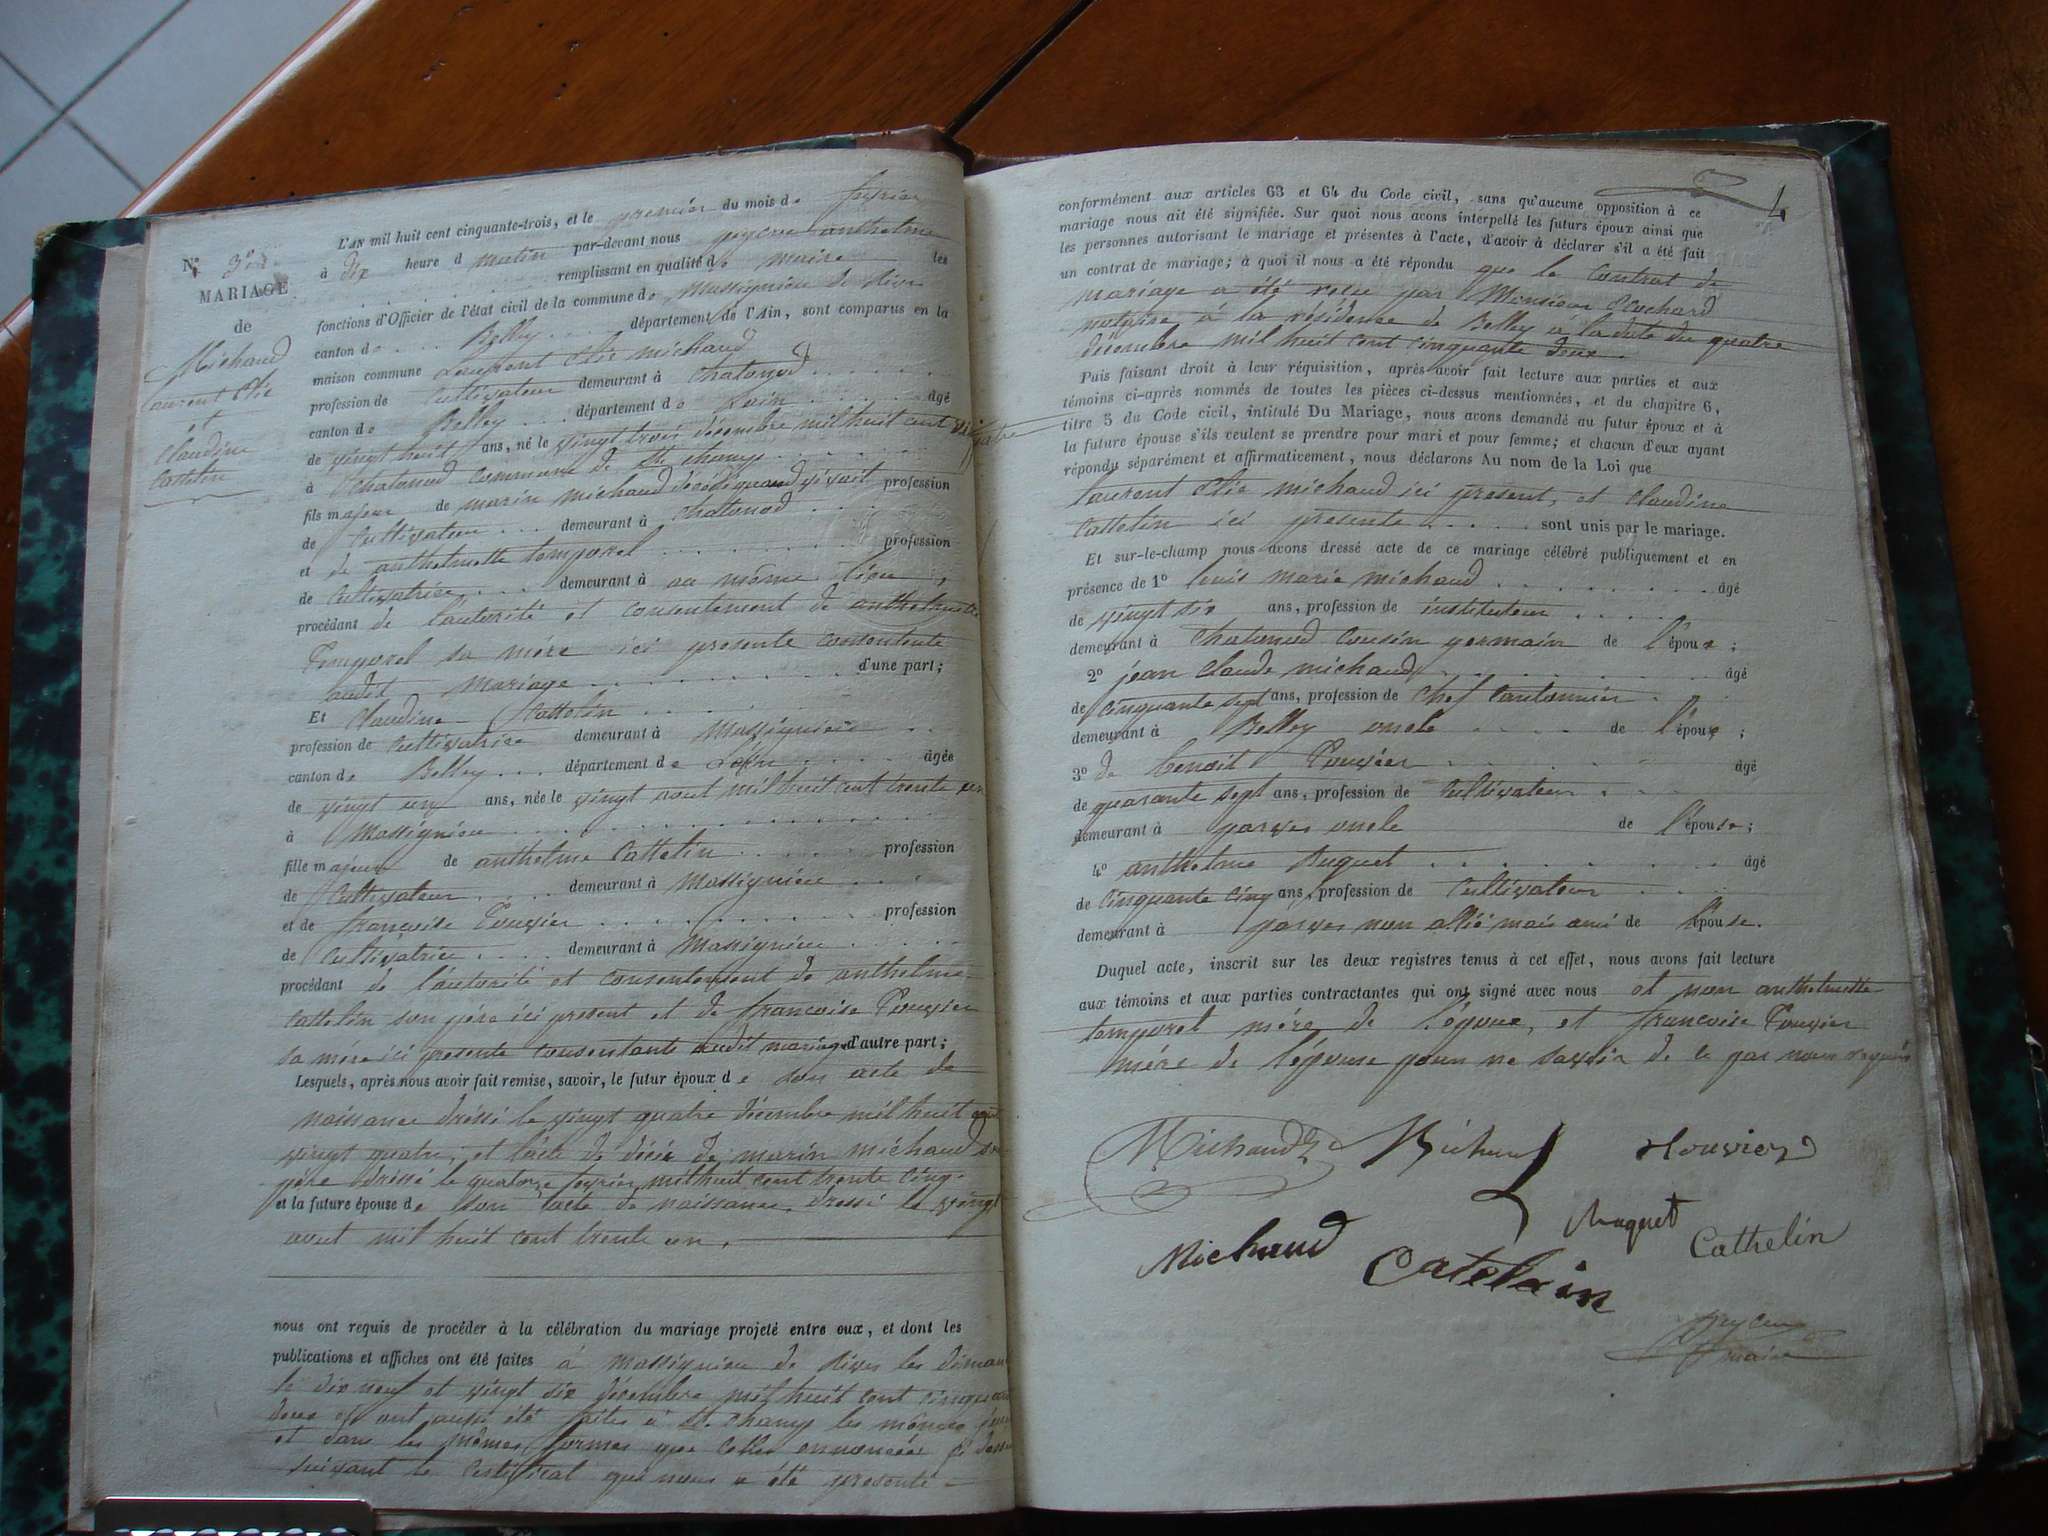 N° 3
MARIAGE
de
Michaud
laurent Elie
et
Claudine
Cattelin
L'AN mil huit cent cinquante-trois, et le premier du mois de fevrier
à dix heure d matin par-devant nous peycru anthelme
remplissant en qualité de maire les
fonctions d'Officier de l'état civil de la commune de Massignieu de rives
canton de Belley département de l'Ain, sont comparus en la
maison commune Laurent Elie michaud
profession de cultivateur demeurant à Chatonod
canton de Belley département de Lain âgé
de vingt huit ans, né le vingt trois décembre mil huit cent vingt quatre
à Chatonod commune de St champ
fils majeur de marin michaud décédé quand vivait profession
de cultivateur demeurant à chatonod
et de anthelmette temporel profession
de cultivatrice demeurant à au même lieu,
procédant de l'autorité et consentement de anthelmette
Temporel sa mère ici presente consentente
audit mariage d'une part;
Et Claudine Cattelin
profession de cultivatrice demeurant à Massignieu
canton de Belley département de Lain âgée
de vingt un ans, née le vingt aout mil huit cent trente un
à Massignieu
fille majeur de anthelme Cattelin profession
de Cultivateur demeurant à Massignieu
et de francoise Pouvier profession
de Cultivatrice demeurant à Massignieu
procédant de l'autorité et consentement de anthelme
Cattelin son père ici present et de francoise Pouvier
sa mère ici presente consentante audit mariage d'autre part;
Lesquels, après nous avoir fait remise, savoir, le futur époux de son acte de
naissance dréssé le vingt quatre décembre mil huit cent
vingt quatre, et l'acte de décès de marin michaud son
père dréssé le quatorze fevrier mil huit cent trente cinq.
et la future épouse de son acte de naissance dressé le vingt
aout mil huit cent trente un.
nous ont requis de procéder à la célébration du mariage projeté entre eux, et dont les
publications et affiches ont été faites à Massignieu de Rives les dimanches
le dix neuf et vingt six décembre mil huit cent cinquante
deux et ont aussi été faites à St. champ les mêmes jours
et dans les mêmes formes que celles ennoncées ci dessus
suivant le certificat qui nous a été presenté
4
conformément aux articles 63 et 64 du Code civil, sans qu'aucune opposition à ce
mariage nous ait été signifiée. Sur quoi nous avons interpellé les futurs époux ainsi que
les personnes autorisant le mariage et présentes à l'acte, d'avoir à déclarer s'il a été fait
un contrat de mariage; à quoi il nous a été répondu que le contrat de
mariage a été reçu par Monsieur
notaire à la résidence de Belley à la date du quatre
décembre mil huit cent cinquante deux
Puis faisant droit à leur réquisition, après avoir fait lecture aux parties et aux
témoins ci-après nommés de toutes les pièces ci-dessus mentionnées, et du chapitre 6,
titre 5 du Code civil, intitulé Du Mariage, nous avons demandé au futur époux et à
la future épouse s'ils veulent se prendre pour mari et pour femme; et chacun d'eux ayant
répondu séparément et affirmativement, nous déclarons Au nom de la Loi que
laurent Elie michaud ici present, et Claudine
Cattelin ici presente sont unis par le mariage.
Et sur-le-champ nous avons dressé acte de ce mariage célébré publiquement et en
présence de 1° louis marie michaud âgé
de vingt six ans, profession de instituteur
demeurant à Chatonod cousin germain de l'époux;
2° jean claude michaud âgé
de cinquante sept ans, profession de chef cantonnier
demeurant à Belley oncle de l'époux;
3° de benoit Pouvier âgé
de quarante sept ans, profession de cultivateur
demeurant à parves oncle de l'épouse;
4° anthelme Buquet âgé
de cinquante cinq ans, profession de cultivateur
demeurant à parves non allié mais ami de l'épouse.
Duquel acte, inscrit sur les deux registres tenus à cet effet, nous avons fait lecture
aux témoins et aux parties contractantes qui ont signé avec nous et non anthelmette
temporel mère de l'époux, et francoise Pouvier
mère de l'épouse pour ne savoir de ce par nous requis
Michaud Michaud Pouvier
Michaud Buquet Cathelin
Catelain
peycru
maire